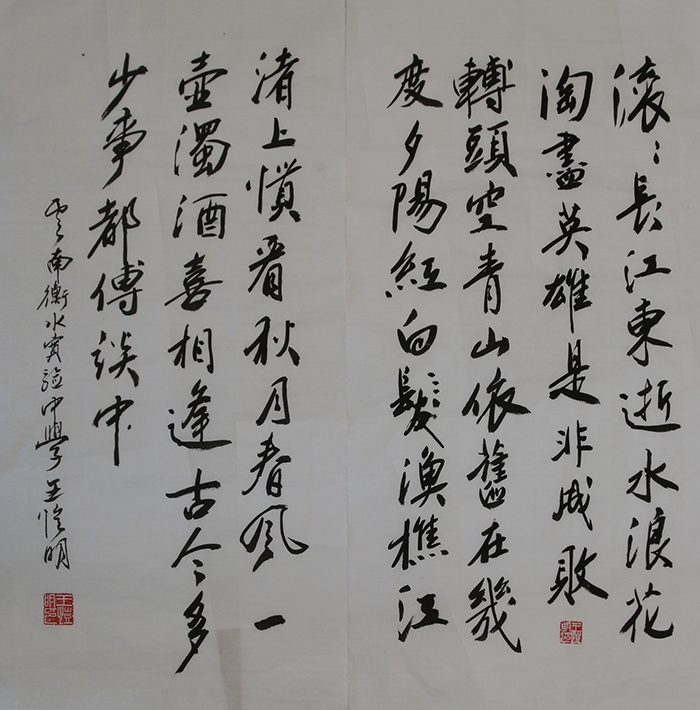 滚〻長江東逝水浪花
淘盡英雄是非成敗
轉頭空青山依舊在幾
度夕陽紅白髮漁樵江
渚上慣看秋月春風一
壺濁酒喜相逢古今多
少事都傅談中
雲南衡水實驗中學王愷明